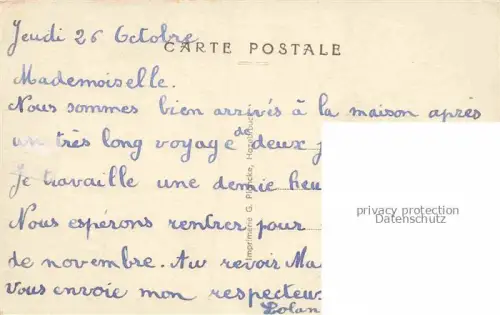 Jeudi 26 Octobre
CARTE POSTALE
Mademoiselle.
Nous sommes bien arrivés à la maison après
un très long voyage de deux j
Je travaille une demie heu
Nous espérons rentrer pour
de novembre. Au revoir Ma
vous envoie mon respecteux
Lolan
Imprimerie G. Hazebrouck
privacy protection
Datenschutz